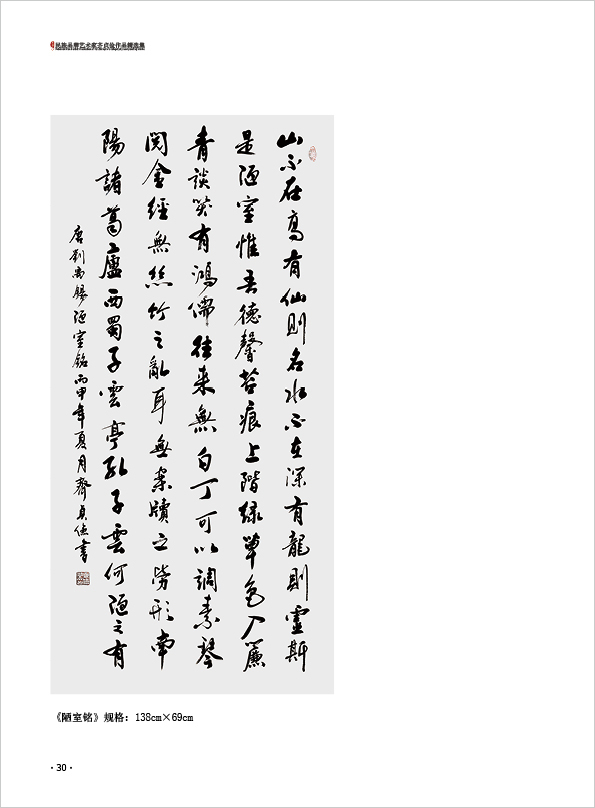 山不在高有仙則名水不在深有龍則靈斯
是陋室惟吾德馨苔痕上階緑草色入簾
青談笑有鴻儒往来無白丁可以調素琴
閲金經無絲竹之亂耳無案牘之勞形南
陽諸葛廬西蜀子雲亭孔子雲何陋之有
唐刘禹錫陋室銘丙申年夏月齊貞書
《陋室铭》规格：138cm×69cm
· 30 ·